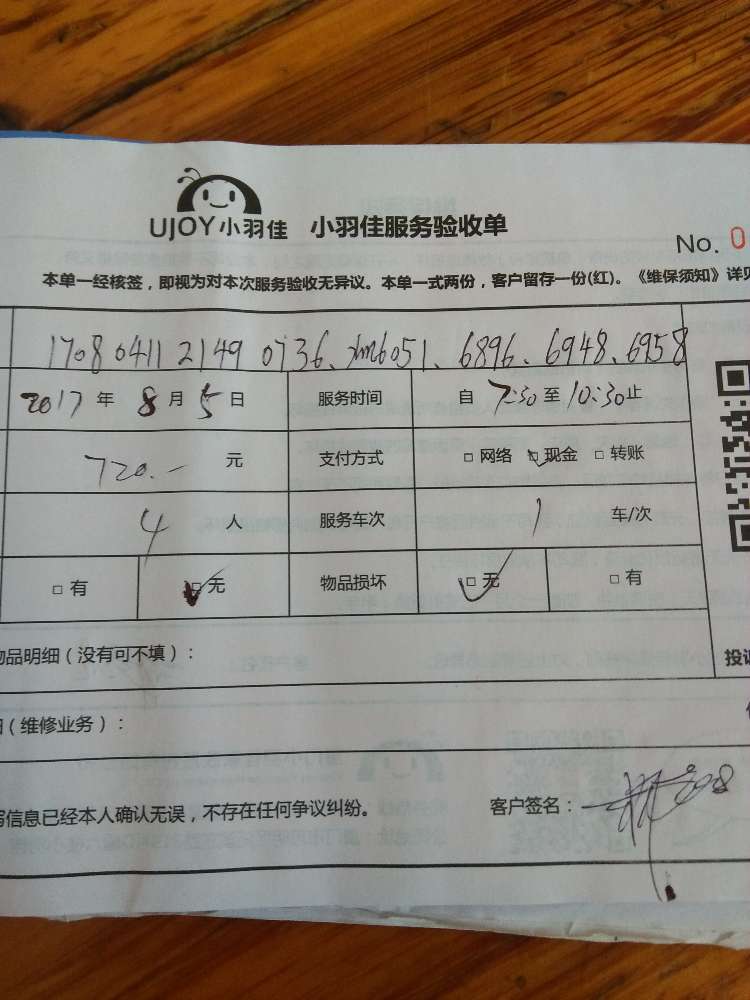 UJOY小羽佳 小羽佳服务验收单
No. 0
本单一经核签，即视为对本次服务验收无异议。本单一式两份，客户留存一份(红)。《维保须知》详见
17080411 2149 0736、xm6051、6896、6948、6958
2017 年 8 月 5 日 服务时间 自 7:30 至 10:30 止
720.- 元 支付方式 □ 网络 ☑ 现金 □ 转账
4 人 服务车次 1 车/次
□ 有 ☑ 无 物品损坏 ☑ 无 □ 有
物品明细（没有可不填）：
投诉
（维修业务）：
信息已经本人确认无误，不存在任何争议纠纷。 客户签名：